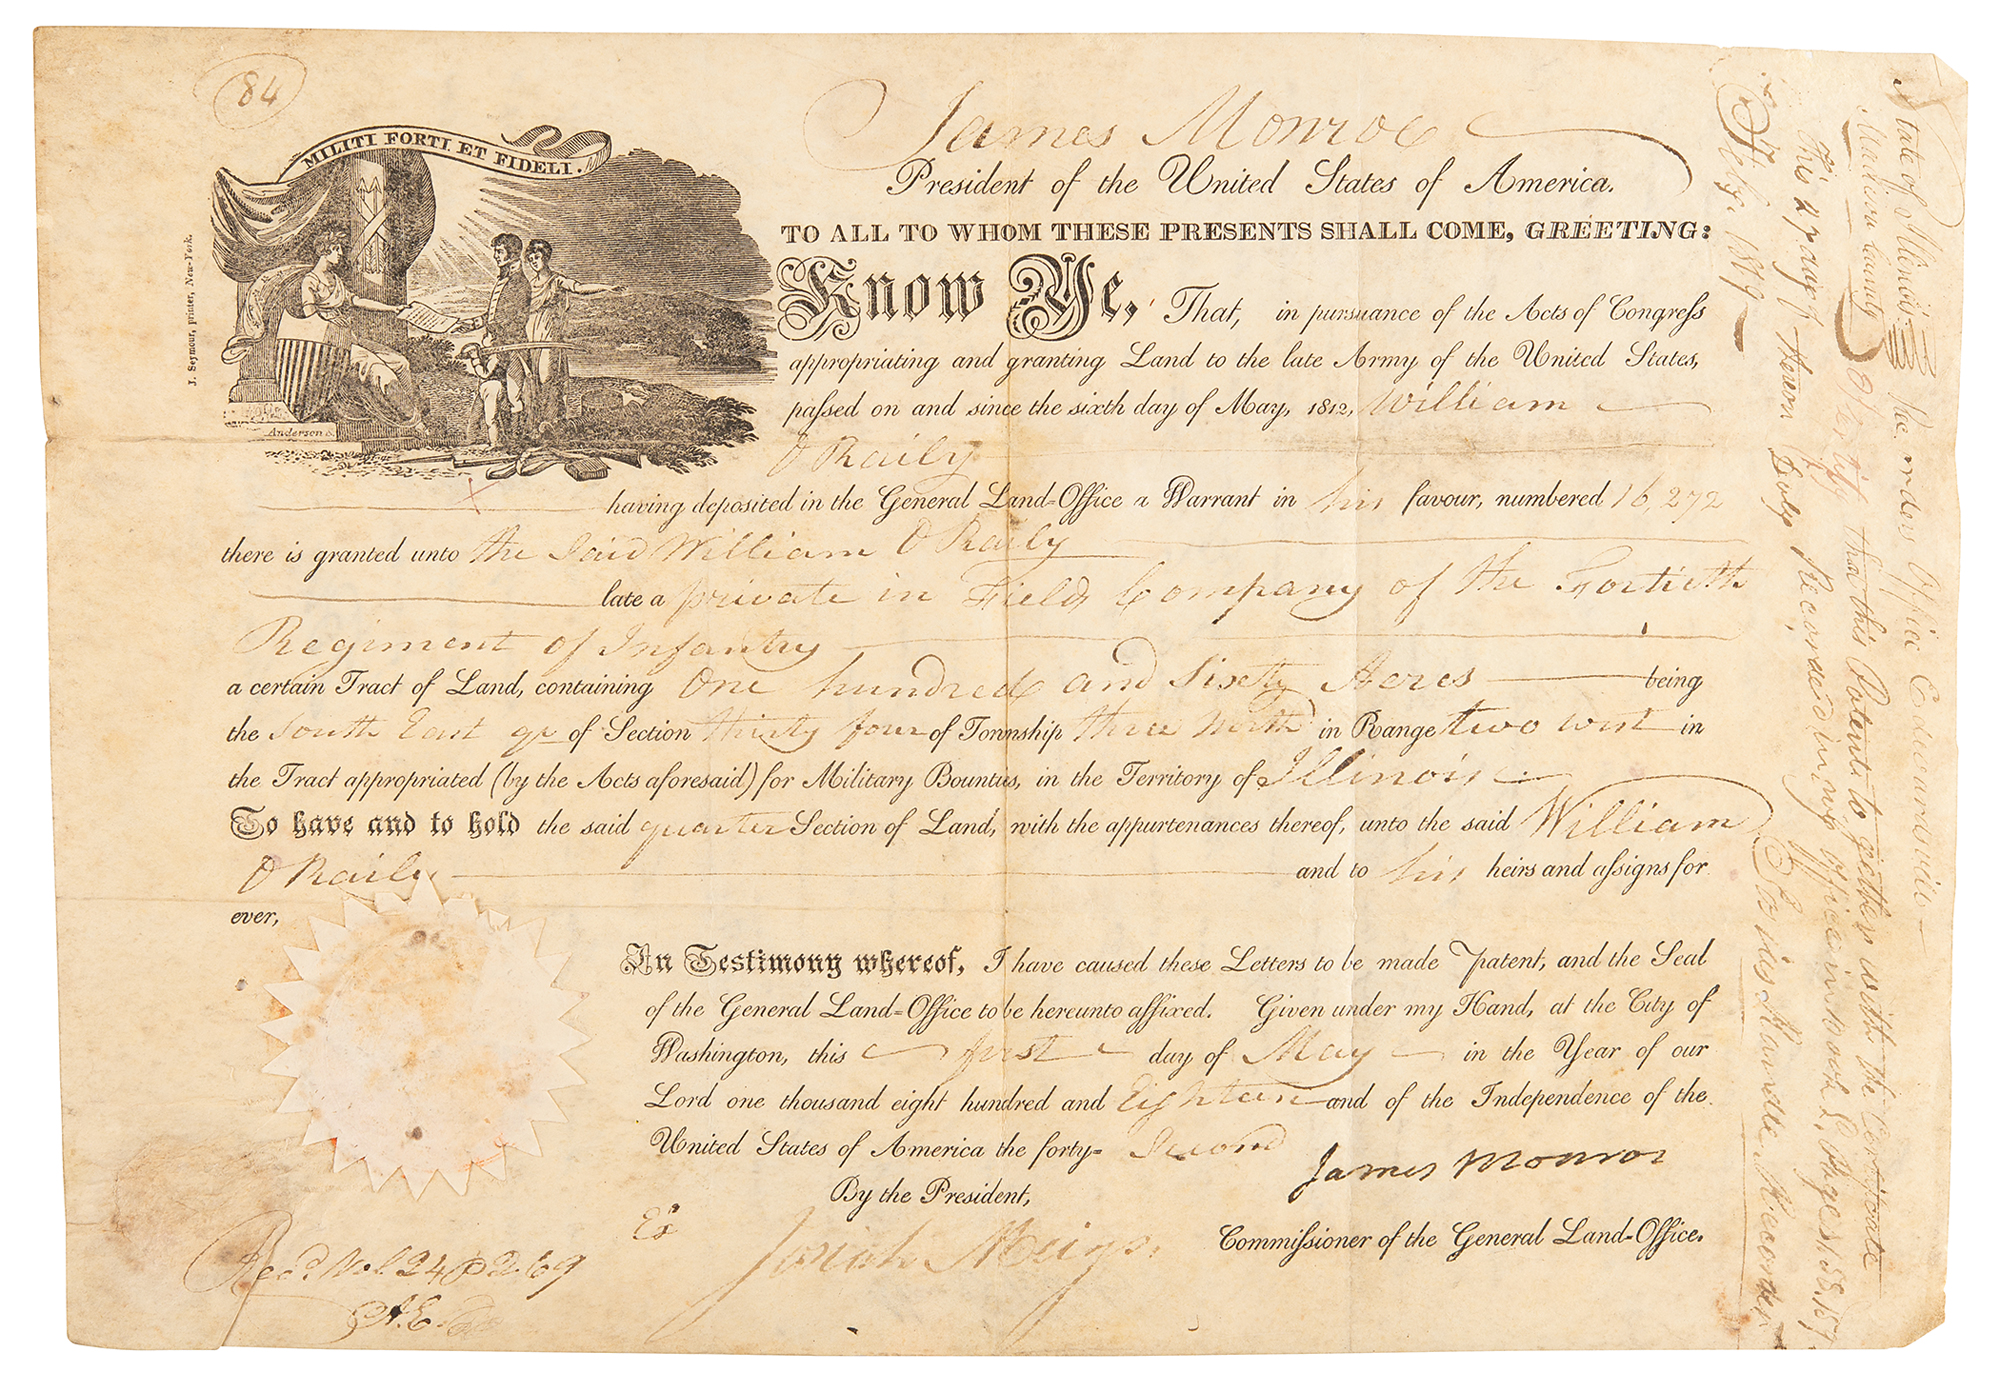 84
MILITI. FORTI. ET FIDELI.
J. Seymour, printer, New-York.
Anderson s.
James Monroe
President of the United States of America.
TO ALL TO WHOM THESE PRESENTS SHALL COME, GREETING:
Know Ye, That, in pursuance of the Acts of Congreſs
appropriating and granting Land to the late Army of the United States,
paſsed on and since the sixth day of May, 1812, William
O Raily
having deposited in the General Land-Office a Warrant in his favour, numbered 16,272
there is granted unto the said William O Raily
late a private in Fields Company of the Fortieth
Regiment of Infantry
a certain Tract of Land, containing One hundred and sixty Acres being
the South East qr of Section thirty four of Township three North in Range two west in
the Tract appropriated (by the Acts aforesaid) for Military Bounties, in the Territory of Illinois
To have and to hold the said quarter Section of Land, with the appurtenances thereof, unto the said William
O Raily and to his heirs and aſsigns for
ever,
In Testimony whereof, I have caused these Letters to be made Patent, and the Seal
of the General Land-Office to be hereunto affixed. Given under my Hand, at the City of
Washington, this first day of May in the Year of our
Lord one thousand eight hundred and Eighteen and of the Independence of the
United States of America the forty- Second
James Monroe
By the President,
Ex
Josiah Meigs.
Commiſsioner of the General Land-Office.
Recd. Vol 24 P 269
State of Illinois
Madison County
Recorders Office Edwardsville
I Certify that this Patent together with the Certificate
thereon Duly Recorded in my Office in Book
Josias Randle Recorder
Feby. 1819